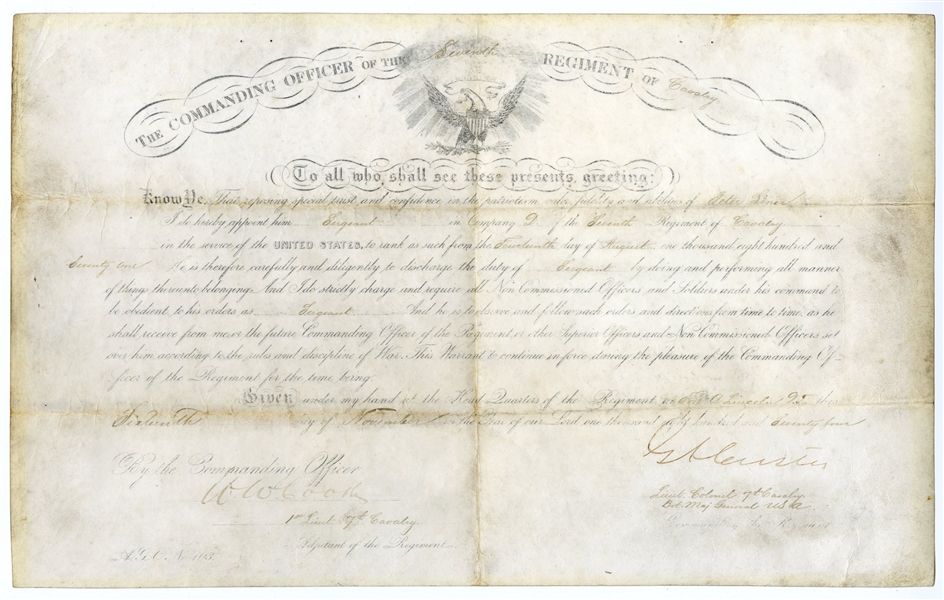 THE COMMANDING OFFICER OF THE Seventh REGIMENT OF Cavalry
To all who shall see these presents, greeting:
Know Ye, That reposing special trust and confidence in the patriotism, valor, fidelity and abilities of
I do hereby appoint him Sergeant in Company D of the Seventh Regiment of Cavalry
in the service of the UNITED STATES, to rank as such from the day of August one thousand eight hundred and
Seventy one He is therefore carefully and diligently to discharge the duty of Sergeant by doing and performing all manner
of things thereunto belonging. And I do strictly charge and require all Non Commissioned Officers and Soldiers under his command to
be obedient to his orders as Sergeant And he is to observe and follow such orders and directions from time to time, as he
shall receive from me, or the future Commanding Officer of the Regiment or other Superior Officers and Non Commissioned Officers set
over him according to the rules and discipline of War. This Warrant to continue in force during the pleasure of the Commanding Of-
ficer of the Regiment for the time being.
Given under my hand at the Head Quarters of the Regiment at A Lincoln D.T. this
day of November in the Year of our Lord one thousand eight hundred and Seventy four
By the Commanding Officer
G A Custer
W W Cook
Lieut. Colonel 7th Cavalry
Bvt. Maj General U.S.A
1st Lieut 7th Cavalry
Commanding the Regiment
Adjutant of the Regiment
A.G.O. No.